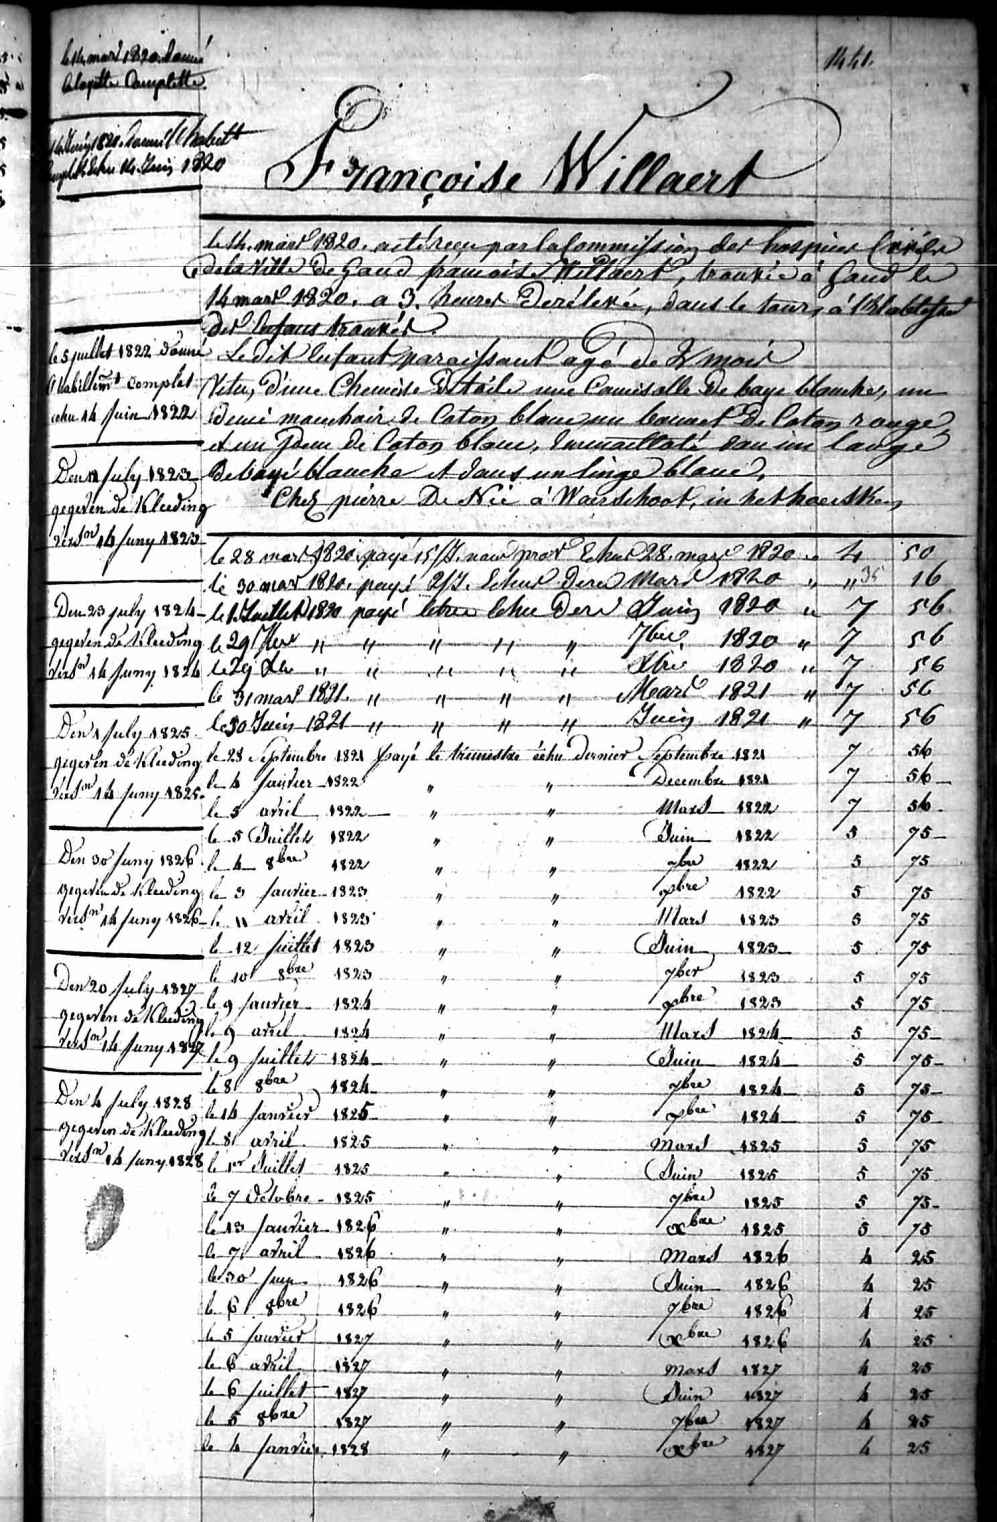 1441.
le 14 mars 1820. donné
la layette Complette.
14 Juin 1820. donné l'habillt
Complet Echu 14. Juin 1820
Françoise Willaert
le 14. mars 1820. a été reçu par la Commission des hospices Civils
de la Ville de Gand françoise Willaert, trouvée à Gand le
14 mars 1820. a 3. heures de rélevée, dans le tour, à l'
des Enfans trouvés.
Ledit Enfant paraissant agé de 2 mois
Vetu, d'une Chemise de toile une Camisolle de baye blanche, un
demi mouchoir de Coton blanc un bonnet de Coton rouge
et un idem de Coton blanc, Emmaillotté dans un lange
de bayé blanche et dans un linge blanc,
Chez pierre De Née à Waerschoot, in het
le 5 juillet 1822 donné
l'habillemt complet
echu 14 juin 1822
Den July 1823
gegeven de Kleeding
versn 14 Juny 1823
Den 23 july 1824
gegeven de Kleeding
versn 14 juny 1824
Den 1 July 1825
gegeven de Kleeding
versn 14 juny 1825
Den 30 Juny 1826
gegeven de Kleeding
versn 14 Juny 1826
Den 20 July 1827
gegeven de Kleeding
versn 14 Juny 1827
Den 4 July 1828
gegeven de Kleeding
versn 14 Juny 1828
le 28 mars 1820. payé 15/J. Echu 28. mars 1820 " 4 50
le 30 mars 1820. payé 2/J. Echus dern Mars 1820 " " 35 16
le 1 Juillet 1820 payé letre Echu dern Juin 1820 " 7 56
le 29 7bre " " " " " 7bre 1820 " 7 56
le 29 Xbre " " " " " Xbre 1820 " 7 56
le 31 mars 1821. " " " " Mars 1821 " 7 56
le 30 Juin 1821 " " " " Juin 1821 " 7 56
le 28 Septembre 1821 payé le trimestre échu dernier Septembre 1821 7 56
le 4 Janvier 1822 " " Decembre 1821 7 56
le 5 avril 1822 " " Mars 1822 7 56
le 5 Juillet 1822 " " Juin 1822 5 75
le 4 8bre 1822 " " 7bre 1822 5 75
le 3 Janvier 1823 " " Xbre 1822 5 75
le 11 avril 1823 " " Mars 1823 5 75
le 12 juillet 1823 " " Juin 1823 5 75
le 10 8bre 1823 " " 7ber 1823 5 75
le 9 Janvier 1824 " " Xbre 1823 5 75
le 9 avril 1824 " " Mars 1824 5 75
le 9 juillet 1824 " " Juin 1824 5 75
le 8 8bre 1824 " " 7bre 1824 5 75
le 14 Janvier 1825 " " Xbre 1824 5 75
le 8 avril 1825 " " Mars 1825 5 75
le 1er Juillet 1825 " " Juin 1825 5 75
le 7 Octobre 1825 " " 7bre 1825 5 75
le 13 Janvier 1826 " " Xbre 1825 5 75
le 7 avril 1826 " " Mars 1826 4 25
le 30 juin 1826 " " Juin 1826 4 25
le 6 8bre 1826 " " 7bre 1826 4 25
le 5 Janvier 1827 " " Xbre 1826 4 25
le 6 avril 1827 " " Mars 1827 4 25
le 6 juillet 1827 " " Juin 1827 4 25
le 5 8bre 1827 " " 7bre 1827 4 25
le 4 Janvier 1828 " " Xbre 1827 4 25